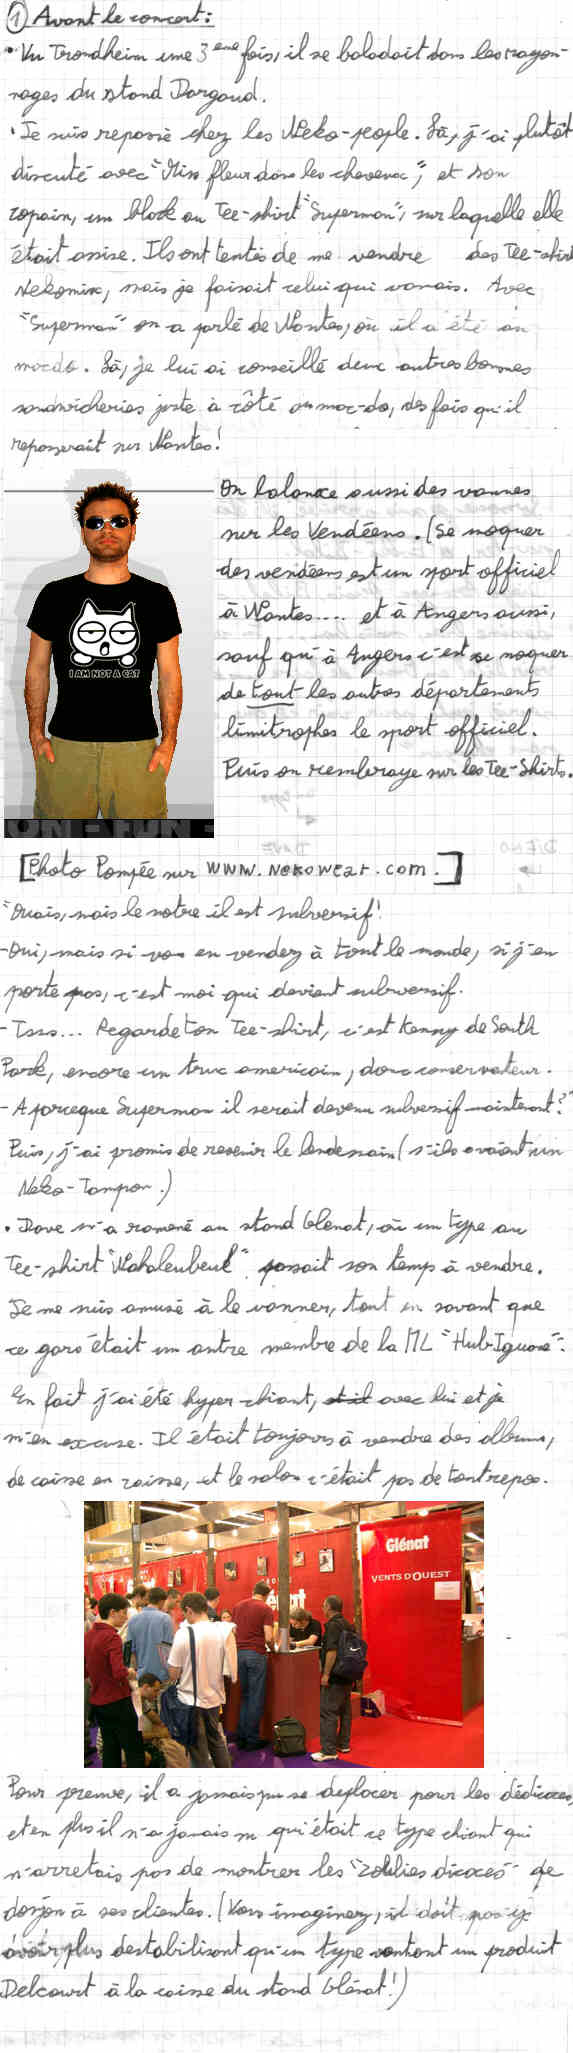 ① Avant le concert :
• Vu Trondheim une 3ème fois, il se baladait dans les rayon-
nages du stand Dargaud.
• Je suis repassé chez les Neko-people. Là, j'ai plutôt
discuté avec "Miss fleur dans les cheveux", et son
copain, un block au Tee-shirt "Superman", sur laquelle elle
était assise. Ils ont tentés de me vendre des Tee-shirt
Nekomix, mais je faisait celui qui vanais. Avec
"Superman" on a parlé de Nantes, où il a été au
macdo. Là, je lui ai conseillé deux autres bonnes
sandwicheries juste à côté au mac-do, des fois qu'il
repasserait sur Nantes !
On balance aussi des vannes
sur les Vendéens. (Se moquer
des vendéens est un sport officiel
à Nantes.... et à Angers aussi,
sauf qu'à Angers c'est se moquer
de tout les autres départements
limitrophes le sport officiel.
Puis on rembraye sur les Tee-Shirts.
I AM NOT A CAT
[Photo Pompée sur WWW.NEKOWEAR.com.]
"Ouais, mais le notre il est subversif !
- Oui, mais si vous en vendez à tout le monde, si j'en
porte pas, c'est moi qui devient subversif.
- Tsss... Regarde ton Tee-shirt, c'est Kenny de South
Park, encore un truc americain, donc conservateur.
- A parceque Superman il serait devenu subversif maintenant ?"
Puis, j'ai promis de revenir le lendemain (s'ils avaient un
Neko-Tampon.)
• Dave m'a ramené au stand Glenat, où un type au
Tee-shirt "Nahaleubeuk" passait son temps à vendre.
Je me suis amusé à le vanner, tout en savant que
ce gars était un autre membre de la ML "Hub-Iguane".
En fait j'ai été hyper-chiant, avec lui et je
m'en excuse. Il était toujours à vendre des albums,
de caisse en caisse, et le salon c'était pas de tout repos.
Glénat
VENTS D'OUEST
Pour preuve, il a jamais pu se deplacer pour les dédicaces,
et en plus il n'a jamais su qui était ce type chiant qui
n'arretais pas de montrer les "zoulies dicaces" de
donjon à ses clientes. (Vous imaginez, il doit pas y
avoir plus destabilisant qu'un type vantant un produit
Delcourt à la caisse du stand Glénat !)